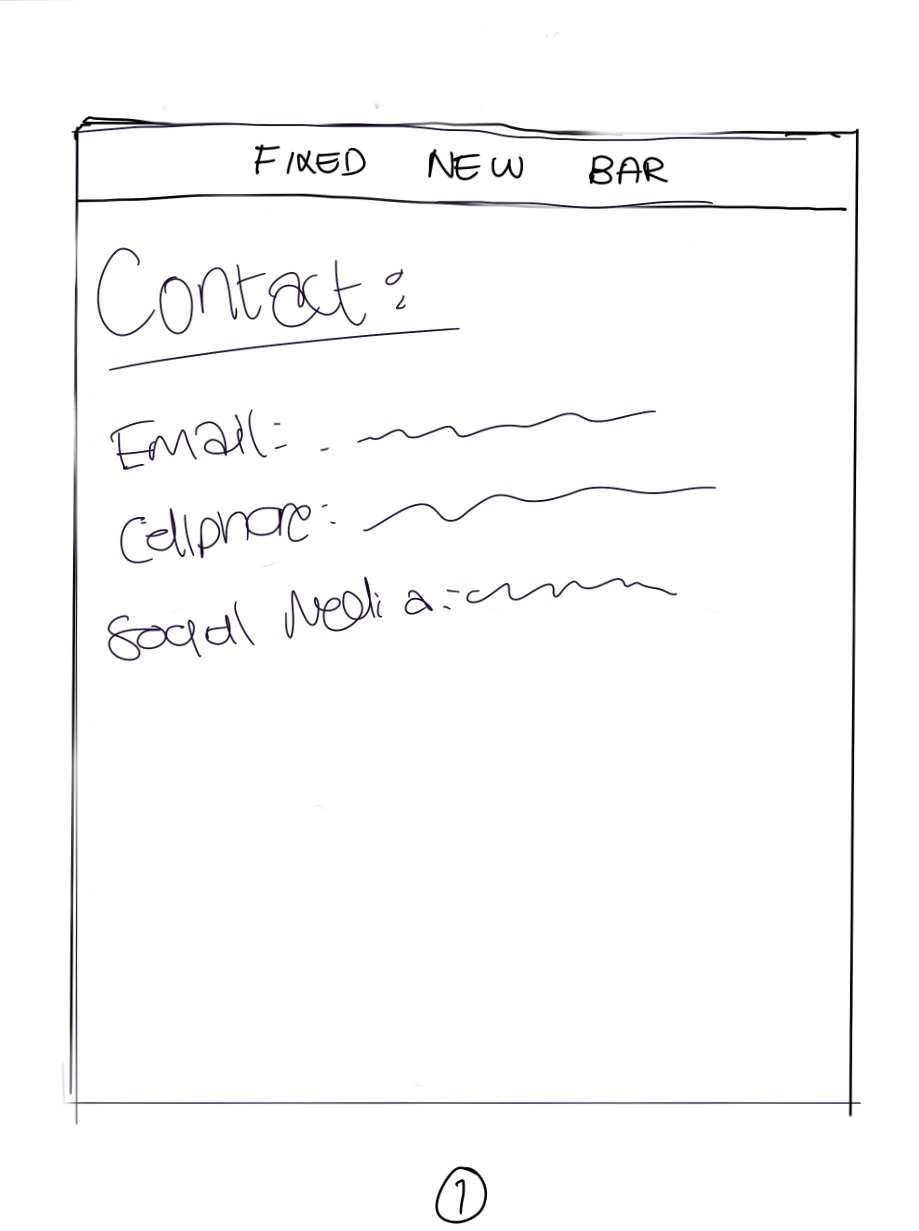 FIXED NEW BAR
Contact:
Email:
Cellphone:
Social Media:
1